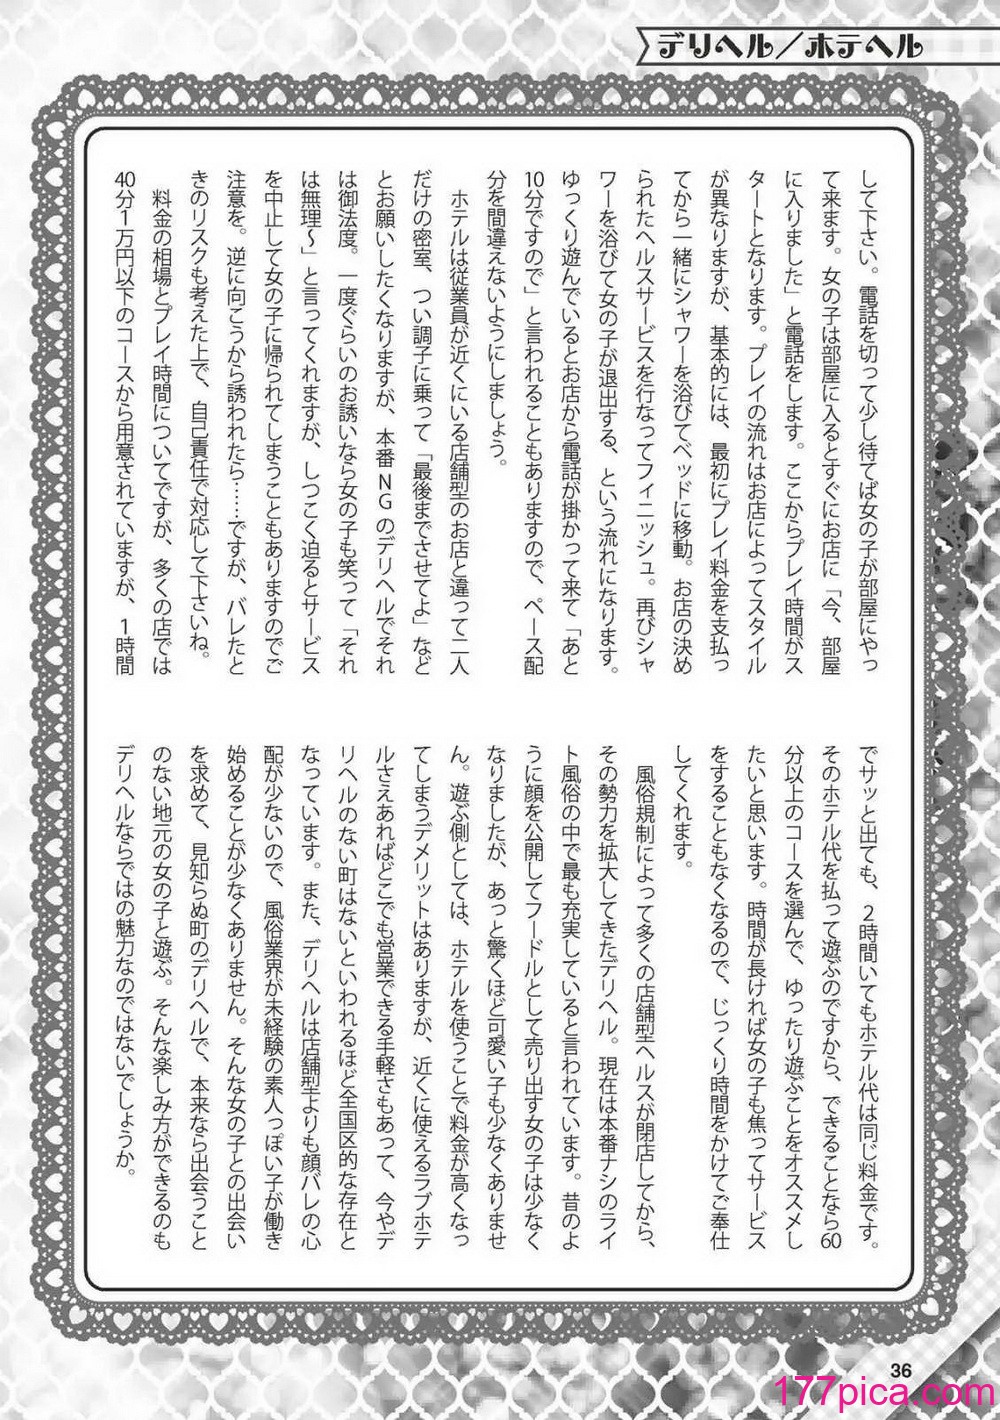 デリヘル／ホテヘル
して下さい。電話を切って少し待てば女の子が部屋にやっ
て来ます。女の子は部屋に入るとすぐにお店に「今、部屋
に入りました」と電話をします。ここからプレイ時間がス
タートとなります。プレイの流れはお店によってスタイル
が異なりますが、基本的には、最初にプレイ料金を支払っ
てから一緒にシャワーを浴びてベッドに移動。お店の決め
られたヘルスサービスを行なってフィニッシュ。再びシャ
ワーを浴びて女の子が退出する、という流れになります。
ゆっくり遊んでいるとお店から電話が掛かって来て「あと
10分ですので」と言われることもありますので、ペース配
分を間違えないようにしましょう。
ホテルは従業員が近くにいる店舗型のお店と違って二人
だけの密室、つい調子に乗って「最後までさせてよ」など
とお願いしたくなりますが、本番NGのデリヘルでそれ
は御法度。一度ぐらいのお誘いなら女の子も笑って「それ
は無理〜」と言ってくれますが、しつこく迫るとサービス
を中止して女の子に帰られてしまうこともありますのでご
注意を。逆に向こうから誘われたら……ですが、バレたと
きのリスクも考えた上で、自己責任で対応して下さいね。
料金の相場とプレイ時間についてですが、多くの店では
40分1万円以下のコースから用意されていますが、1時間
でサッと出ても、2時間いてもホテル代は同じ料金です。
そのホテル代を払って遊ぶのですから、できることなら60
分以上のコースを選んで、ゆったり遊ぶことをオススメし
たいと思います。時間が長ければ女の子も焦ってサービス
をすることもなくなるので、じっくり時間をかけてご奉仕
してくれます。
風俗規制によって多くの店舗型ヘルスが閉店してから、
その勢力を拡大してきたデリヘル。現在は本番ナシのライ
ト風俗の中で最も充実していると言われています。昔のよ
うに顔を公開してフードルとして売り出す女の子は少なく
なりましたが、あっと驚くほど可愛い子も少なくありませ
ん。遊ぶ側としては、ホテルを使うことで料金が高くなっ
てしまうデメリットはありますが、近くに使えるラブホテ
ルさえあればどこでも営業できる手軽さもあって、今やデ
リヘルのない町はないといわれるほど全国区的な存在と
なっています。また、デリヘルは店舗型よりも顔バレの心
配が少ないので、風俗業界が未経験の素人っぽい子が働き
始めることが少なくありません。そんな女の子との出会い
を求めて、見知らぬ町のデリヘルで、本来なら出会うこと
のない地元の女の子と遊ぶ。そんな楽しみ方ができるのも
デリヘルならではの魅力なのではないでしょうか。
36
177pica.com